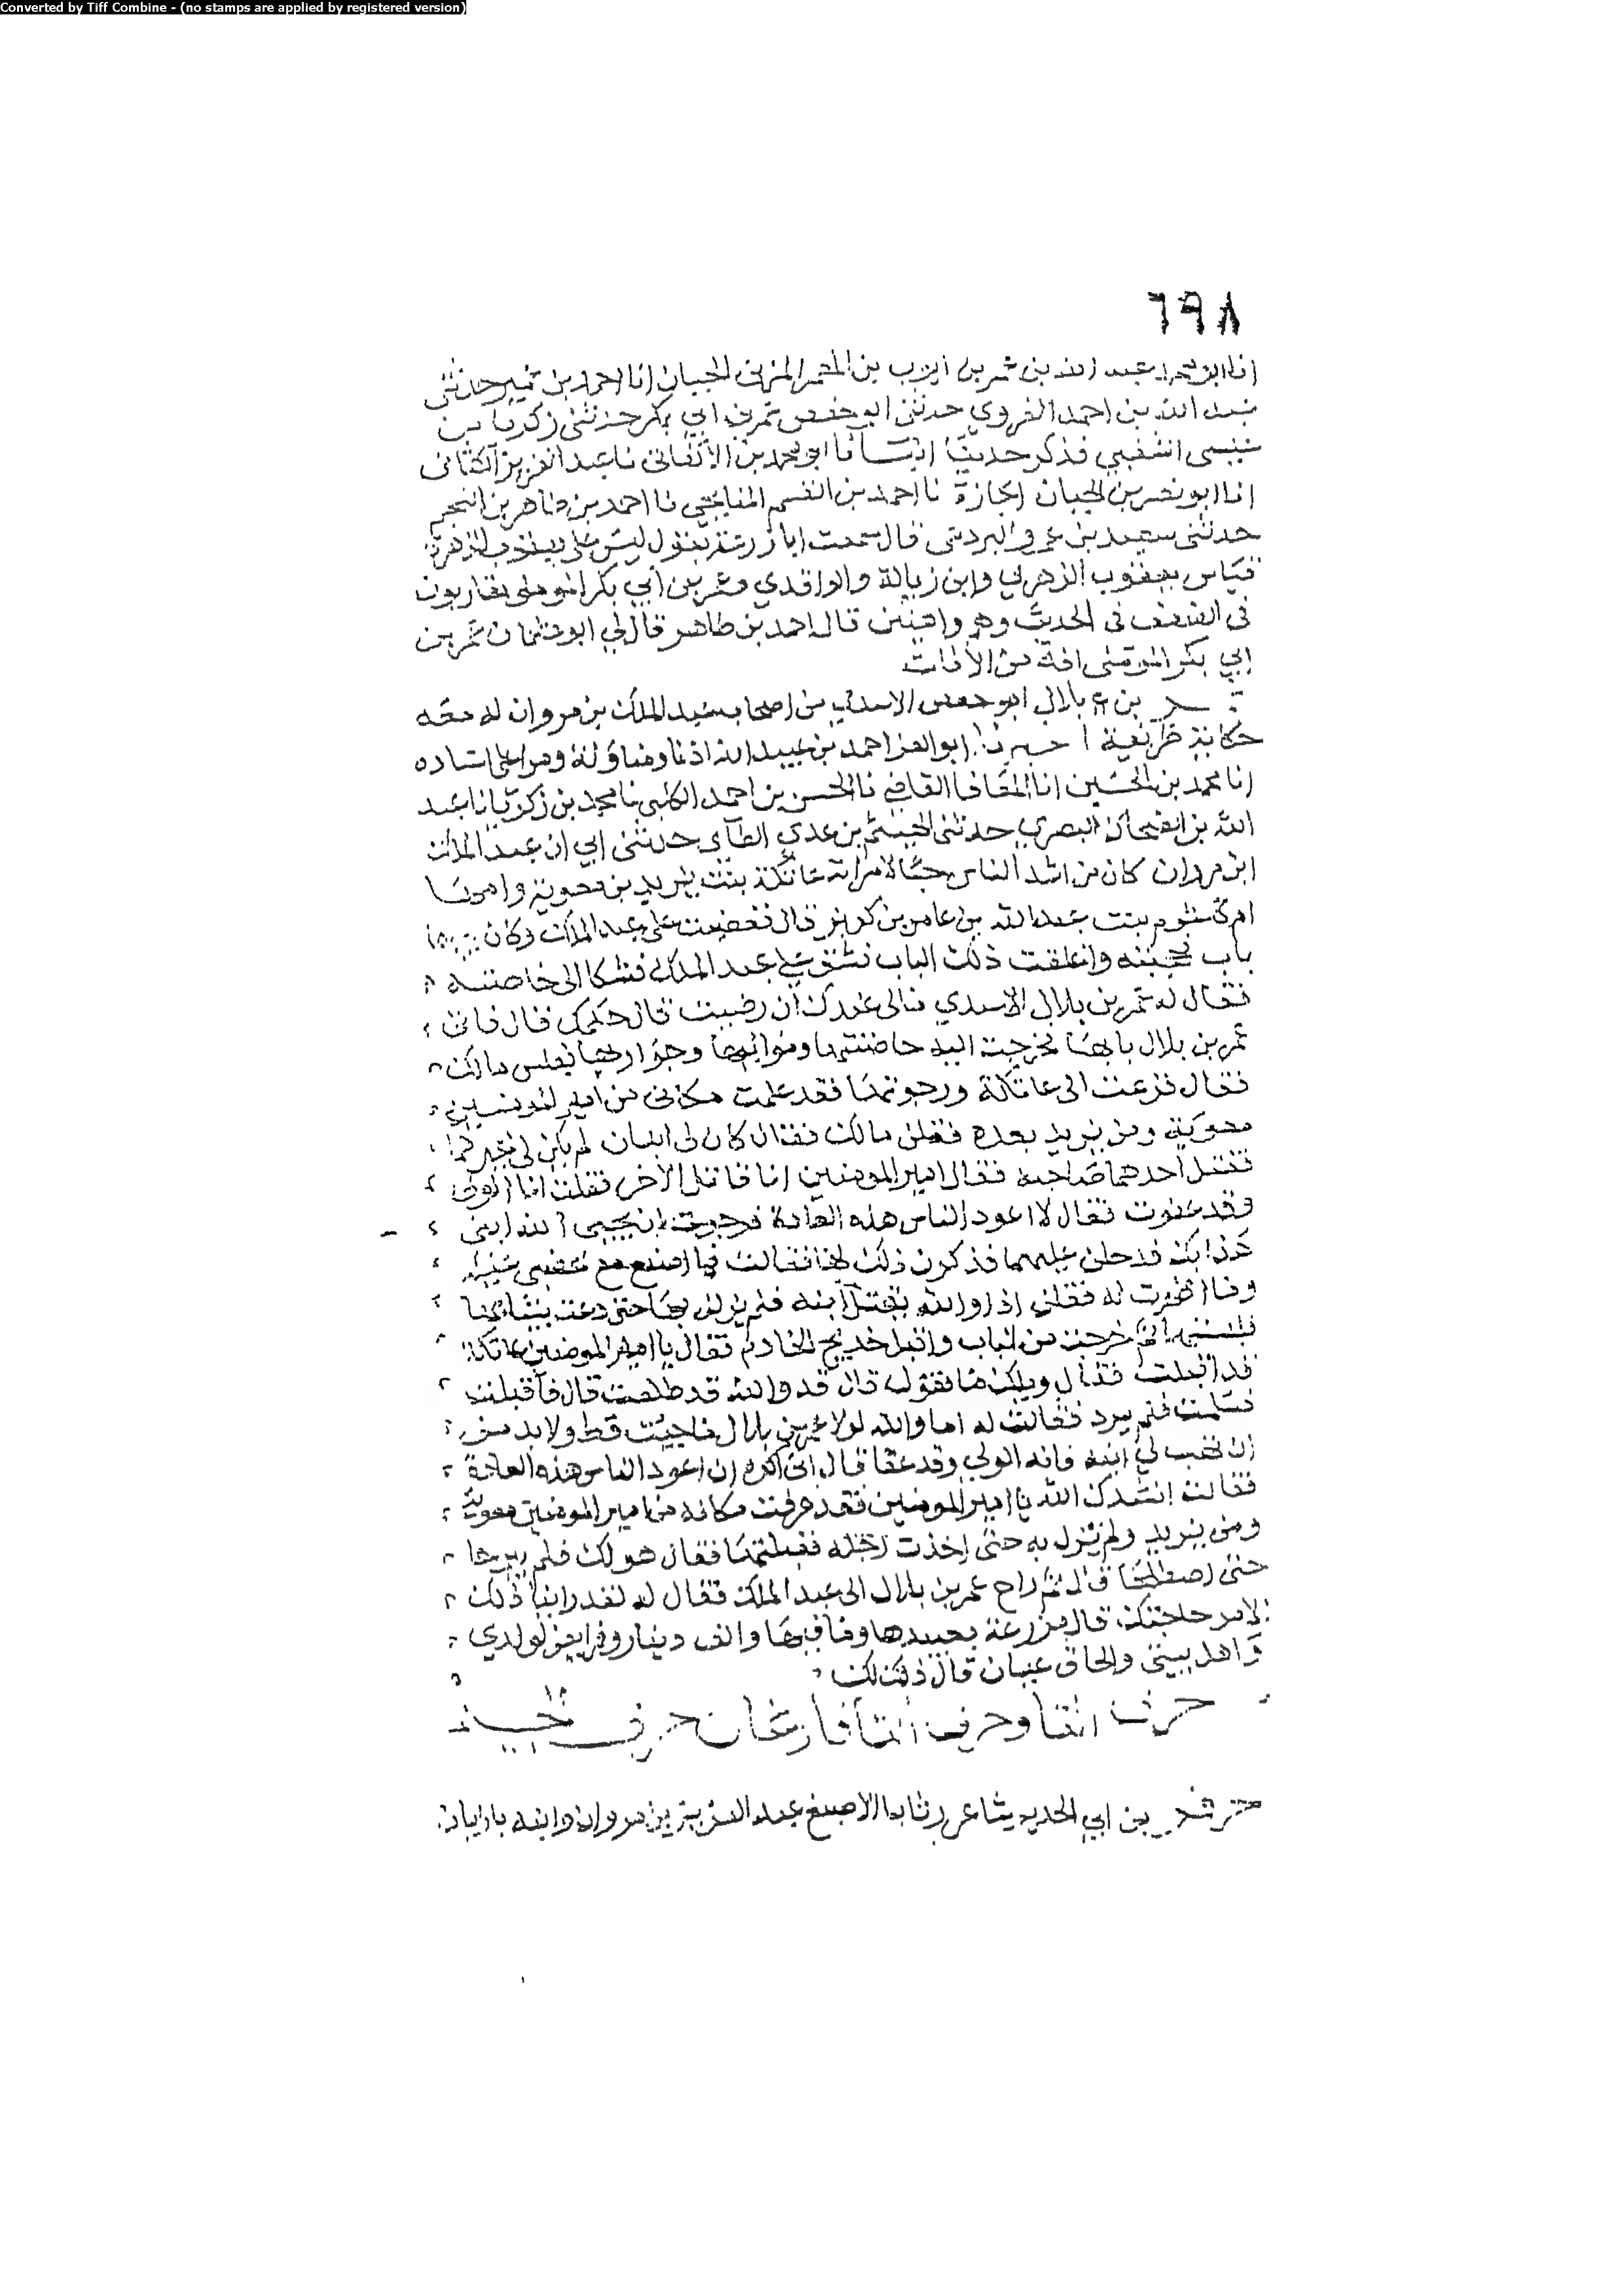 Converted by Tiff Combine - (no stamps are applied by registered version)
٦٩٨
انا ابو محمد عبد الله بن عمر بن ايوب بن المعمر المزني الجبان انا احمد بن عمير حدثني
عبد الله بن احمد الفروي حدثني ابو حفص عمر بن ابي بكر حدثني زكريا بن
عيسى الشعبي فذكر حديثا انبانا ابو محمد بن الاكفاني نا عبد العزيز الكتاني
انا ابو نصر بن الجبان اجازة نا احمد بن القسم الميانجي نا احمد بن طاهر بن النجم
حدثني سعيد بن عمرو البردعي قال سمعت ابا زرعة يقول ليس على يعقوب الزهري
قياس يعقوب الزهري وابن زبالة والواقدي وعمر بن ابي بكر الموملي يقاربون
في الضعف في الحديث وهو واهيين قال احمد بن طاهر قال لي ابو عثمان عمر بن
ابي بكر الموملي افة من الافات
عمر بن بلال ابو حفص الاسدي من اصحاب عبد الملك بن مروان له معه
حكاية طريفة اخبرنا ابو العز احمد بن عبيد الله اذنا ومناولة وقرا علي اسناده
انا محمد بن الحسين انا المعافا القاضي نا الحسن بن احمد الكلبي نا محمد بن زكريا نا عبد
الله بن الضحاك البصري حدثني الهيثم بن عدي الطآي حدثني ابي ان عبد الملك
ابن مروان كان من اشد الناس حبا لامراته عاتكة بنت يزيد بن معوية وامها
ام كلثوم بنت عبد الله بن عامر بن كريز قال فغضبت على عبد الملك وكان بينهما
باب فحجبته واغلقت ذلك الباب فشق على عبد الملك فشكا الى خاصته
فقال له عمر بن بلال الاسدي مالي عندك ان رضيت قال حكمك قال فاتى
عمر بن بلال بابها فخرجت اليه حاضنتها ومواليها وجواريها فقلن مالك
فقال فزعت الى عاتكة ورجوتها فقد علمت مكاني من امير المومنين
معوية ومن يزيد بعده فقلن مالك فقال كان لي ابنان لم يكن لي غيرهما
فقتل احدهما صاحبه فقال امير المومنين انا قاتل الاخر فقلت انا الولي
وقد عفوت فقال لا اعود الناس هذه العادة فرجوت ان يحيى الله ابني
هذا بك فدخلن عليها فذكرن ذلك لها فقالت فما اصنع مع غضبي عليه
وما اظهرت له فقلن اذا والله يقتل ابنه فلم يزلن بها حتى دعت بثيابها
فلبستها ثم خرجت من الباب واقبل خديج الخادم فقال يا امير المومنين عاتكة
قد اقبلت فقال ويلك ما تقول قال قد والله قد طلعت قال فاقبلت
فسلمت فلم يرد فقالت له اما والله لولا عمر بن بلال ما جيت قط ولا بد من
ان تهب لي ابنه فانه الولي وقد عفا قال اني اكره ان اعود الناس هذه العادة
فقالت انشدك الله يا امير المومنين فقد عرفت مكانه من امير المومنين معوية
ومن يزيد ولم تزل به حتى اخذت رجله فقبلتها فقال هو لك فلم يبرحا
حتى اصطلحا قال ثم راح عمر بن بلال الى عبد الملك فقال له لقد راينا ذلك
الامر حاجتك قال مزرعة بعبيدها وما فيها والف دينار وفرايض لولدي
واهل بيتي والحاق عيال قال ذلك لك
حرف التا وحرف الثا فارغان حرف الجيم
عمر بن ابي الحديد شاعر رثا ابا الاصبغ عبد العزيز بن مروان وابنه ابا زبان